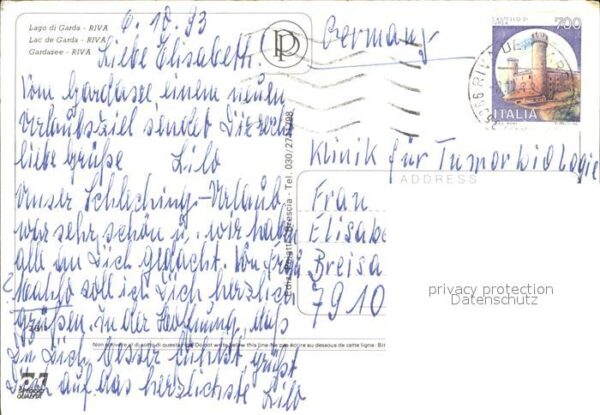 Lago di Garda - RIVA
Lac de Garda - RIVA
Gardasee - RIVA
6.10.93
Liebe Elisabeth.
Vom Gardasee einem neuen
Urlaubsziel sendet Dir
liebe Grüße Lilo
Unser Schleching-Urlaub
war sehr schön u. wir haben
alle an Dich gedacht. Von Frau
soll ich Dich herzlich
grüßen. In der Hoffnung, daß
Du Dich besser fühlst grüßt
Dich auf das herzlichste Lilo
Brescia - Tel. 030/
Germany
700
ITALIA
Klinik für Tumorbiologie
ADDRESS
Frau
Elisabe
Breisa
7910
privacy protection
Datenschutz
Do not write below this line - Ne pas écrire au dessous de cette ligne - Bit